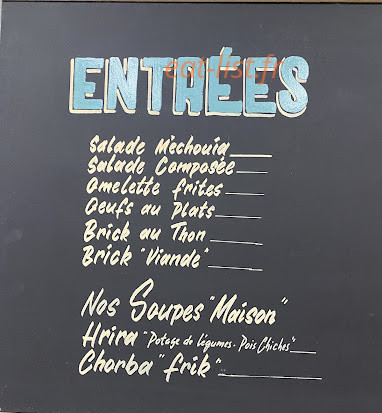 ENTRÉES
eat-list.fr
Salade Mèchouia
Salade Composée
Omelette frites
Oeufs au Plats
Brick au Thon
Brick "Viande"
Nos Soupes "Maison"
Hrira "Potage de légumes - Pois Chiches"
Chorba "frik"